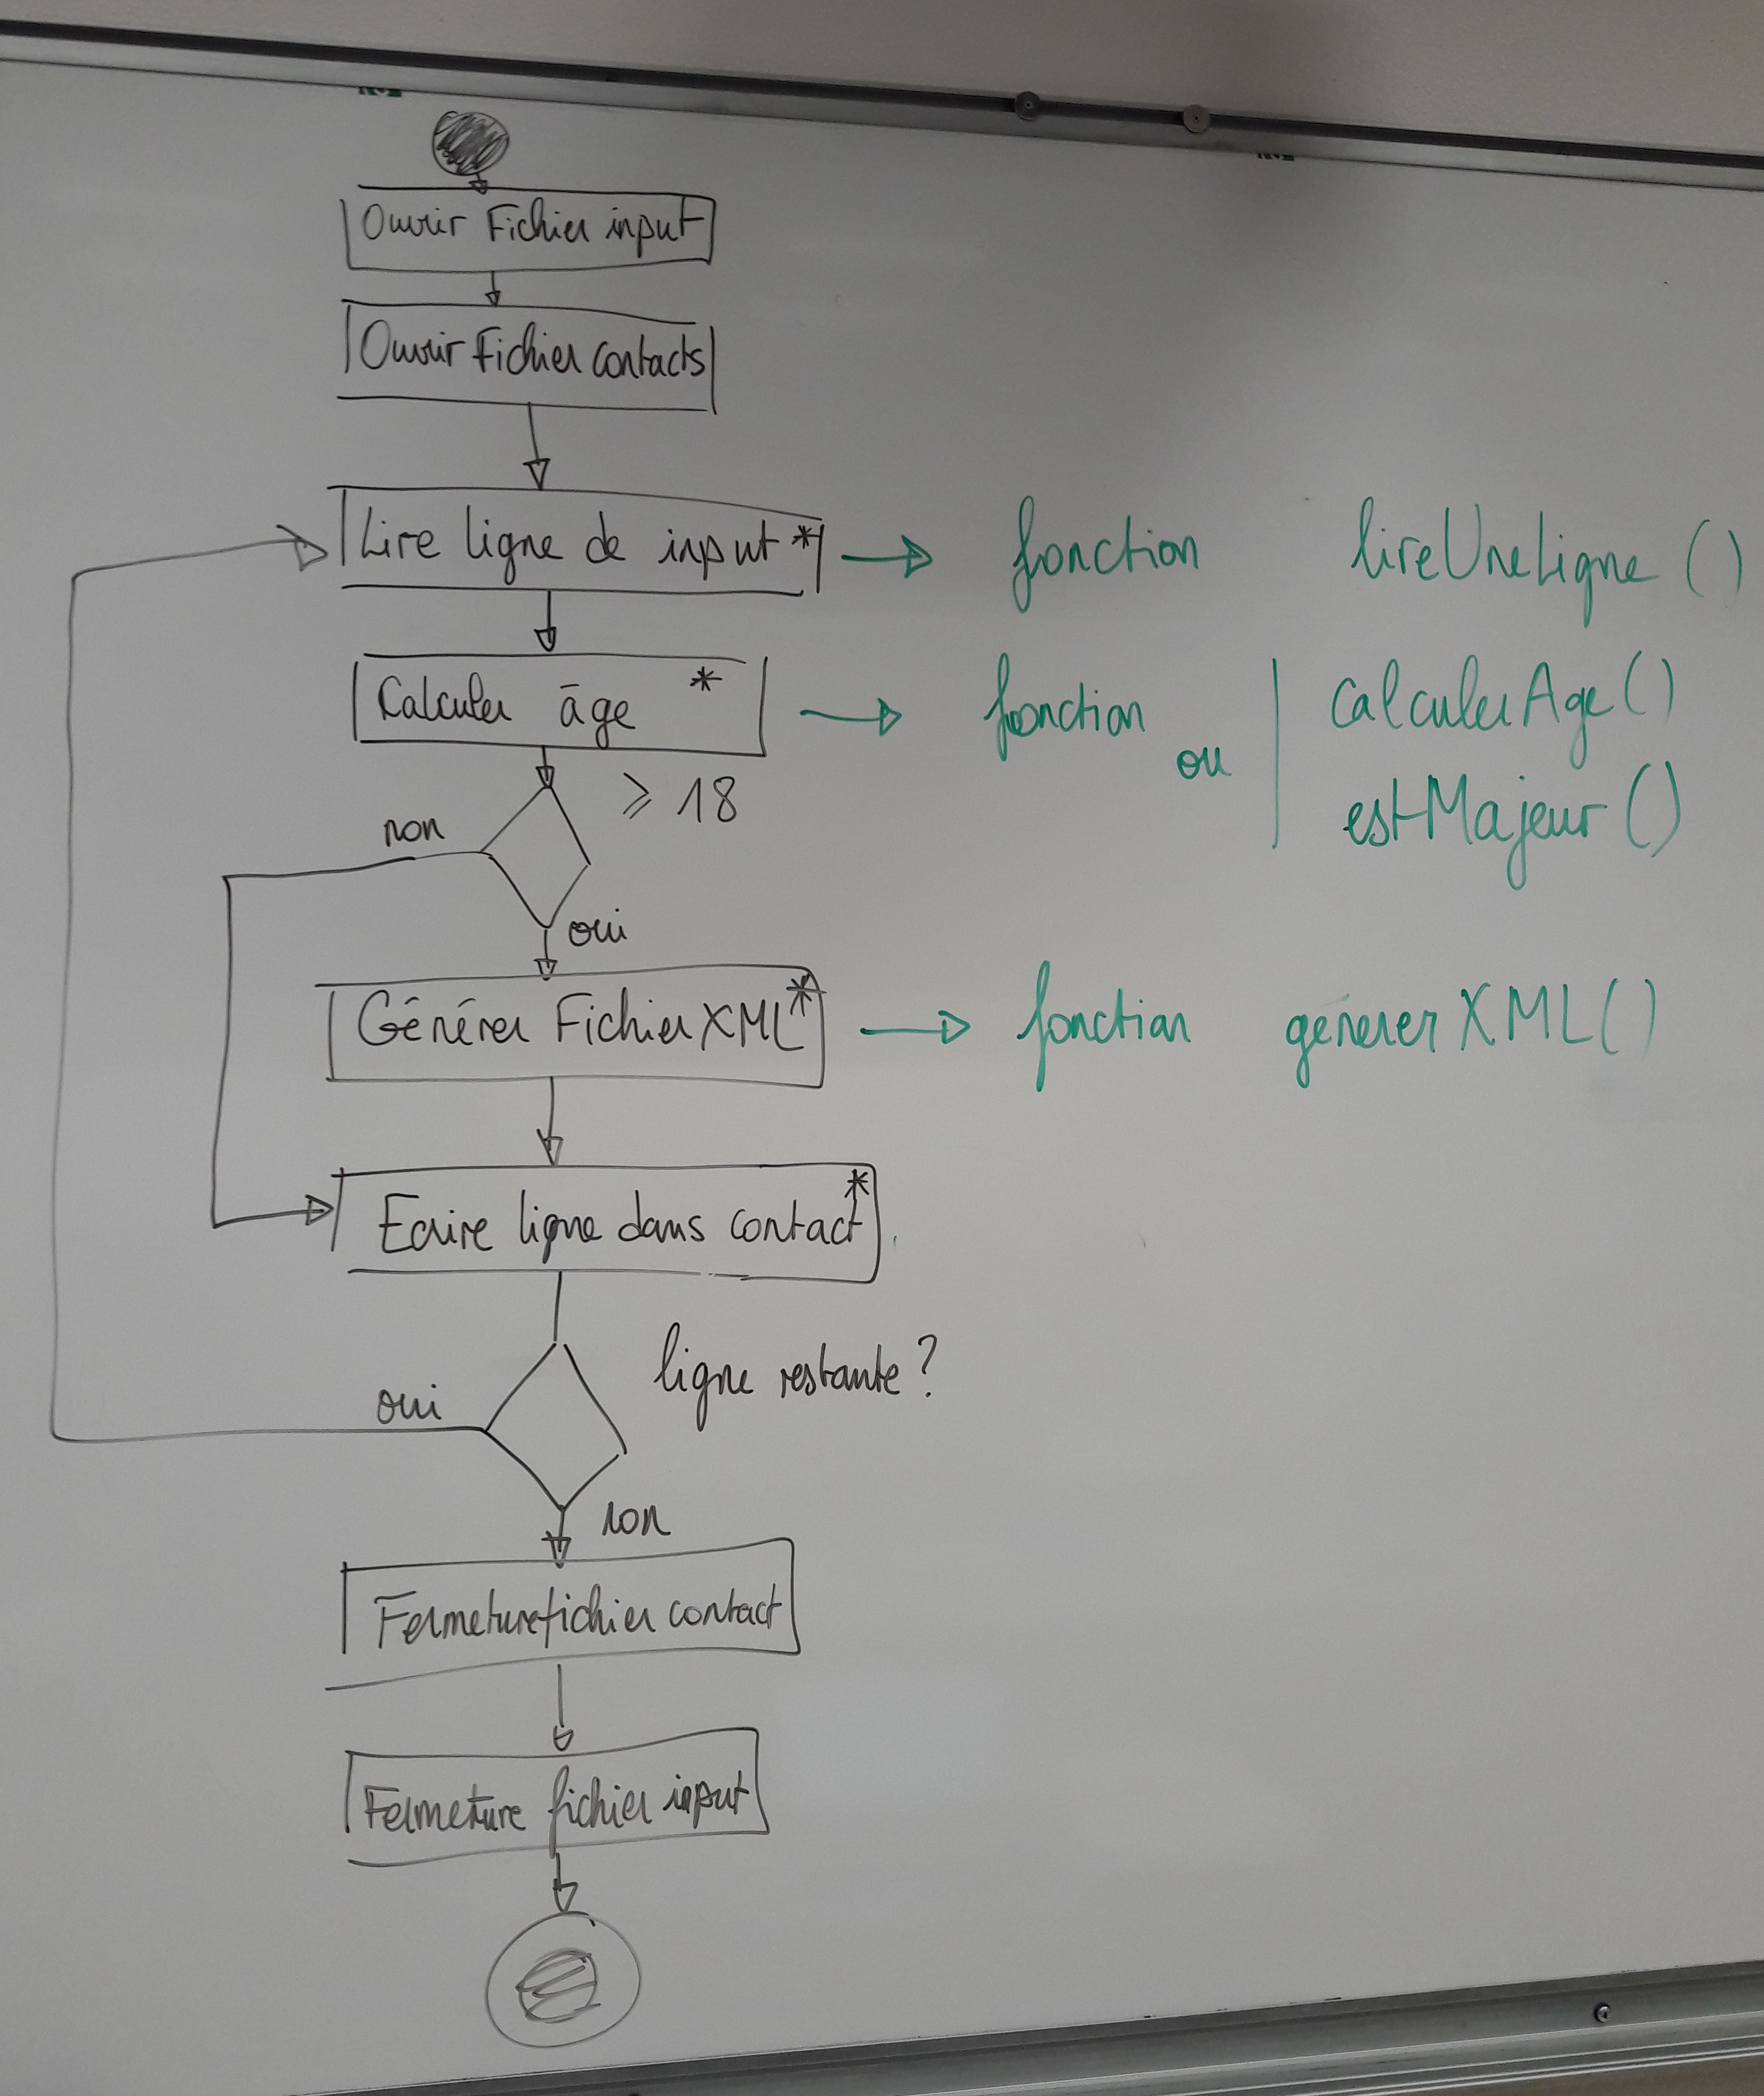 Ouvrir Fichier input
Ouvrir Fichier contacts
Lire ligne de input * fonction lireUneLigne ()
Calculer âge * fonction ou calculerAge ()
estMajeur ()
≥ 18
non
oui
Générer Fichier XML * fonction génerer XML ()
Ecrire ligne dans contact *
ligne restante ?
oui
non
Fermeture fichier contact
Fermeture fichier input